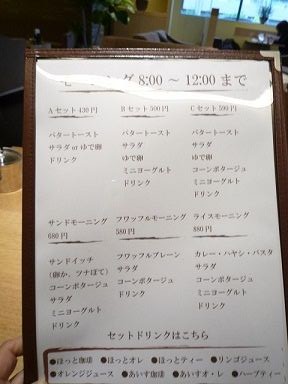 モーニング 8:00 ～ 12:00 まで
Aセット 430円
バタートースト
サラダ or ゆで卵
ドリンク
Bセット 500円
バタートースト
サラダ
ゆで卵
ミニヨーグルト
ドリンク
Cセット 590円
バタートースト
サラダ
ゆで卵
コーンポタージュ
ミニヨーグルト
ドリンク
サンドモーニング
680円
サンドイッチ
(卵か、ツナぽて)
コーンポタージュ
サラダ
ミニヨーグルト
ドリンク
フワッフルモーニング
580円
フワッフルプレーン
サラダ
コーンポタージュ
ドリンク
ライスモーニング
880円
カレー・ハヤシ・パスタ
サラダ
コーンポタージュ
ミニヨーグルト
ドリンク
セットドリンクはこちら
●ほっと珈琲 ●ほっとオレ ●ほっとティー ●リンゴジュース
●オレンジジュース ●あいす珈琲 ●あいすオ・レ ●ハーブティー